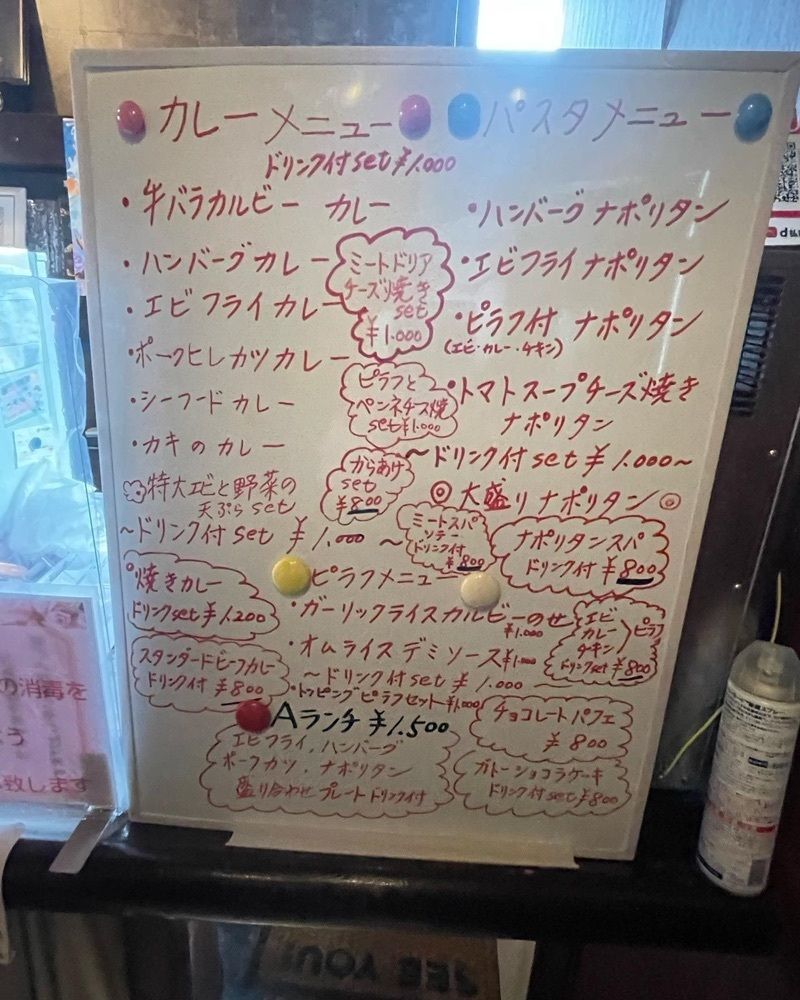 カレーメニュー
ドリンク付set ¥1.000
・牛バラカルビー カレー
・ハンバーグカレー
・エビフライカレー
・ポークヒレカツカレー
・シーフードカレー
・カキのカレー
特大エビと野菜の
天ぷらset
～ドリンク付set ¥1.000～
焼きカレー
ドリンクset ¥1.200
スタンダードビーフカレー
ドリンク付 ¥800
ミートドリア
チーズ焼き
set
¥1.000
ピラフと
ペンネチーズ焼
set¥1.000
からあげ
set
¥800
パスタメニュー
・ハンバーグ ナポリタン
・エビフライナポリタン
・ピラフ付 ナポリタン
(エビ・カレー・チキン)
・トマトスープチーズ焼き
ナポリタン
～ドリンク付set ¥1.000～
◎大盛りナポリタン◎
ミートスパ
ソテー
ドリンク付
¥800
ナポリタンスパ
ドリンク付 ¥800
ピラフメニュー
・ガーリックライスカルビーのせ
¥1.000
・オムライスデミソース¥1.000
～ドリンク付set ¥1.000
・トッピングピラフセット¥1.000
エビ
カレー
チキン
ピラフ
ドリンクset ¥800
Aランチ ¥1.500
エビフライ、ハンバーグ
ポークカツ、ナポリタン
盛り合わせプレートドリンク付
チョコレートパフェ
¥800
ガトーショコラケーキ
ドリンク付set¥800
の消毒を
う
致します
SEE YOU